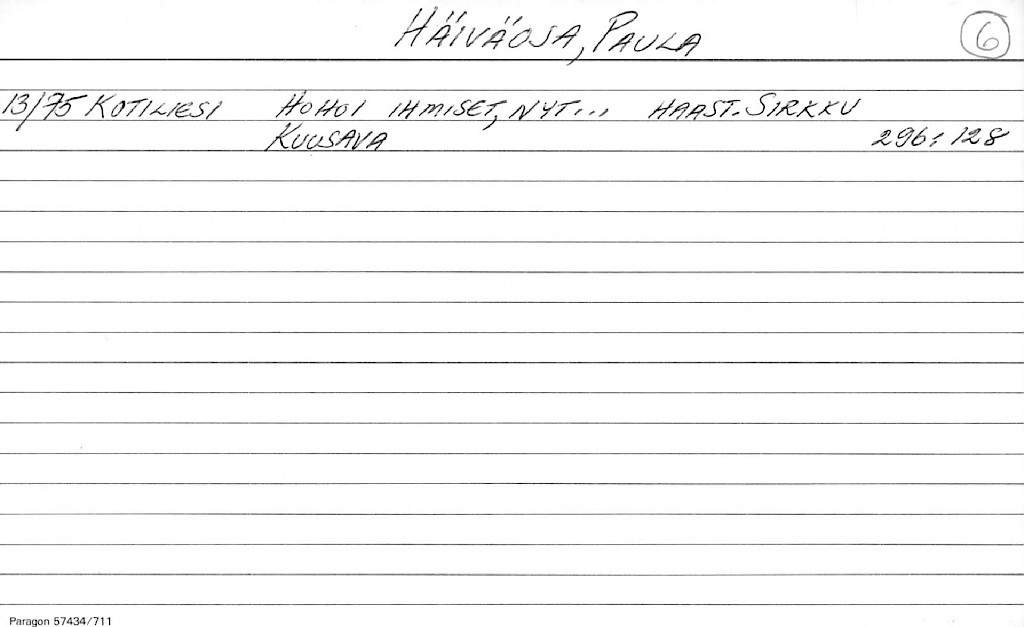 HÄIVÄOJA, PAULA 6
13/75 KOTILIESI HOHOI IHMISET, NYT... HAAST. SIRKKU
KUUSAVA 296: 128
Paragon 57434/711